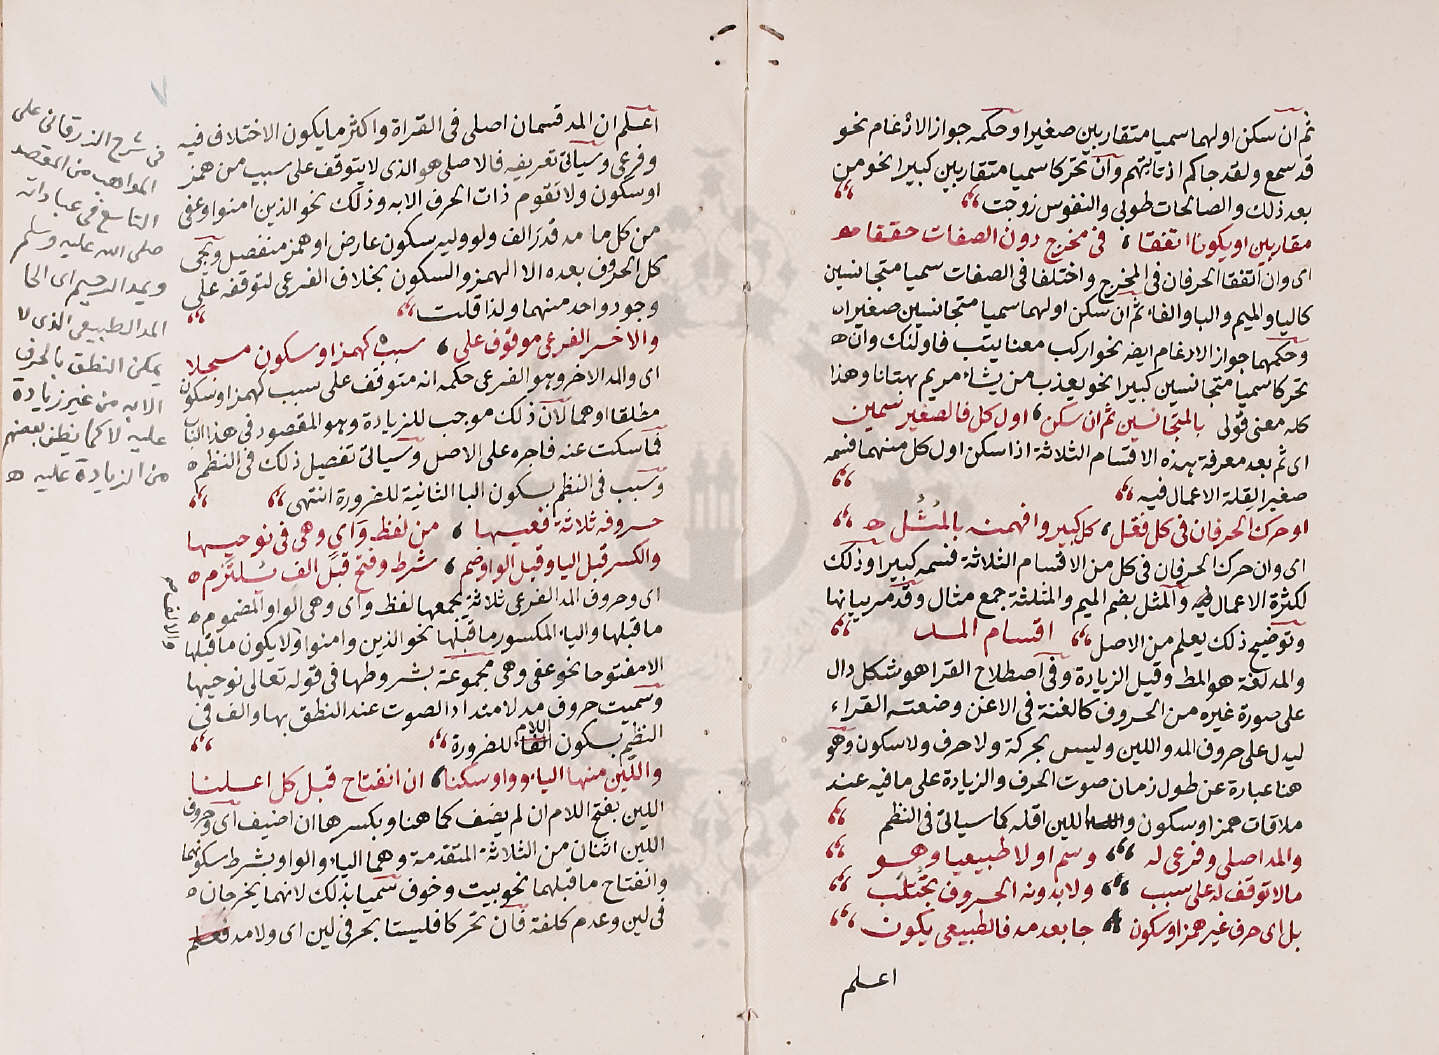 ثم ان سكن اولهما سميا متقاربين صغيرا وحكمه جواز الادغام نحو
قد سمع ولقد جاكم اذ تاتيهم وان تحركا سميا متقاربين كبيرا نحو من
بعد ذلك والصالحات طوبى والنفوس زوجت
مقاربين او يكونا اتفقا ، في مخرج دون الصفات حققا
اى وان اتفقا الحرفان في المخرج واختلفا في الصفات سميا متجانسين
كاليا والميم والبا والفا، ثم ان سكن اولهما سميا متجانسين صغيران
وحكمهما جواز الادغام ايضا نحو اركب معنا يتب فاولئك وان
تحركا سميا متجانسين كبيرا نحو يعذب من يشاء مريم بهتانا وهذا
كله معنى قولى بالمتجانسين ثم ان سكن ، اول كل فالصغير سمين
اى ثم بعد معرفة هذه الاقسام الثلاثة اذا سكن اول كل منهما فسمه
صغيرا لقلة الاعمال فيه
او حرك الحرفان في كل فقل ، كل كبير وافهمنه بالمثل
اى وان حرك الحرفان في كل من الاقسام الثلاثة فسمه كبيرا وذلك
لكثرة الاعمال فيه والمثل بضم الميم والمثلثة جمع مثال وقد مر بيانها
وتوضيح ذلك يعلم من الاصل اقسام المد
والمد لغة هو المط وقيل الزيادة وفى اصطلاح القرا هو شكل دال
على صورة غيره من الحروف كالغنة في الاغن وضعته القراء
ليدل على حروف المد واللين وليس بحركة ولا حرف ولا سكون وهو
هنا عبارة عن طول زمان صوت الحرف والزيادة على ما فيه عند
ملاقات همز او سكون واللين اقله كما سياتى في النظم
والمد اصلى وفرعى له ، وسم اولا طبيعيا وهو
مالا توقف له على سبب ، ولا بدونه الحروف تجتلب
بل اى حرف غير همز او سكون ، جا بعد مد فالطبيعى يكون
اعلم
اعلم ان المد قسمان اصلى في القراة واكثر ما يكون الاختلاف فيه
وفرعى وسياتى تعريفه فالاصلى هو الذى لا يتوقف على سبب من همز
او سكون ولا تقوم ذات الحرف الا به وذلك نحو الذين امنوا وعفى
من كل ما مد قدر الف ولو وليه سكون عارض او همز منفصل ويجى
كل الحروف بعده الا الهمز والسكون بخلاف الفرعى لتوقفه على
وجود واحد منهما ولذا قلت
والاخر الفرعى موقوف على ، سبب كهمز او سكون مسجلا
اى والمد الاخر وهو الفرعى حكمه انه متوقف على سبب كهمز او سكون
مطلقا او هما لان ذلك موجب للزيادة وهو المقصود في هذا الباب
فما سكت عنه فاجره على الاصل وسياتى تفصيل ذلك في النظم
وسبب في النظم بسكون البا الثانية للضرورة انتهى
حروفه ثلاثة فعيها ، من لفظ واى وهى في نوحيها
والكسر قبل اليا وقبل الواو ضم ، شرط وفتح قبل الف يلتزم
اى وحروف المد الفرعى ثلاثة يجمعها لفظ واى وهى الواو المضموم
ما قبلها والياء المكسور ما قبلها نحو الذين وامنوا ولا يكون ما قبلها
الا مفتوحا نحو عفى وهى مجموعة بشروطها في قوله تعالى نوحيها
وسميت حروف مد لامتداد الصوت عند النطق بها والف في
النظم بسكون اللام للضرورة
واللين منها الياء وواو سكنا ، ان انفتاح قبل كل اعلنا
اللين بفتح اللام ان لم يضف كما هنا وبكسرها ان اضيف اى وحروف
اللين اثنان من الثلاثة المتقدمة وهما الياء والواو بشرط سكونهما
وانفتاح ما قبلهما نحو بيت وخوف سميا بذلك لانهما يخرجان
في لين وعدم كلفة فان تحركا فليستا بحرفى لين اى ولا مد فعلم
والالف
في شرح الزرقانى على
المواهب من المقصد
التاسع في عباداته
صلى الله عليه وسلم
ويمد الرحيم اى الحا
المد الطبيعى الذى لا
يمكن النطق بالحرف
الا به من غير زيادة
عليه لا كما يظن بعضهم
من الزيادة عليه
٧